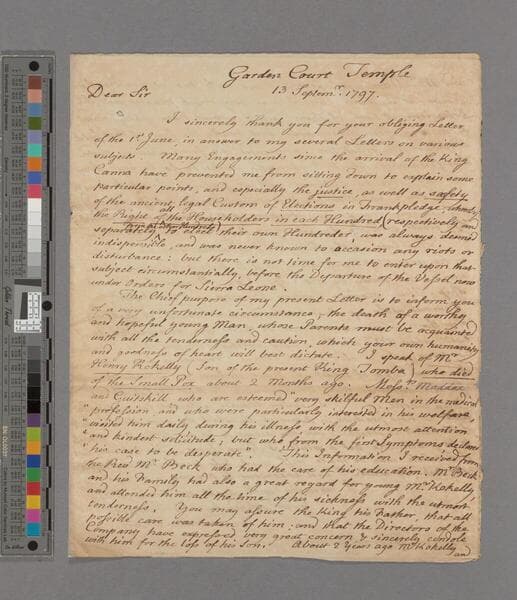 Garden Court Temple
13 Septemr. 1797.
Dear Sir
I sincerely thank you for your obliging Letter
of the 1st June, in answer to my several Letters on various
subjects. Many Engagements since the arrival of the King
Canna have prevented me from sitting down to explain some
particular points, and especially the justice, as well as safety
of the ancient legal Custom of Elections in Frankpledge, whereby
the Right of all the Householders in each Hundred (respectively and
separately to elect their own Hundreder, was always deemed
indispensible, and was never known to occasion any riots or
disturbance: but there is not time for me to enter upon that
subject circumstantially, before the Departure of the Vessel now
under Orders for Sierra Leone.
The Chief purpose of my present Letter is to inform you
of a very unfortunate circumstance, the death of a worthy
and hopeful young Man, whose Parents must be acquainted
with all the tenderness and caution, which your own humanity
and goodness of heart will best dictate. I speak of Mr.
Henry Kokelly (Son of the present King Tomba) who died
of the Small Pox about 2 Months ago. Messrs.
and who are esteemed "very skilful Men in the medical
"profession and who were particularly interested in his welfare
"visited him daily during his illness with the utmost attention
"and kindest solicitude; but who from the first Symptoms declared
"his case to be desperate". This Information I received from
the Revd. Mr. Beck who had the care of his education. Mr. Beck
and his Family had also a great regard for young Mr. Kokelly
and attended him all the time of his sickness with the utmost
tenderness. You may assure the King his Father, that all
possible care was taken of him; and that the Directors of the
Company have expressed very great concern & sincerely condole
with him for the loss of his Son. About 2 Years ago Mr. Kokelly
and